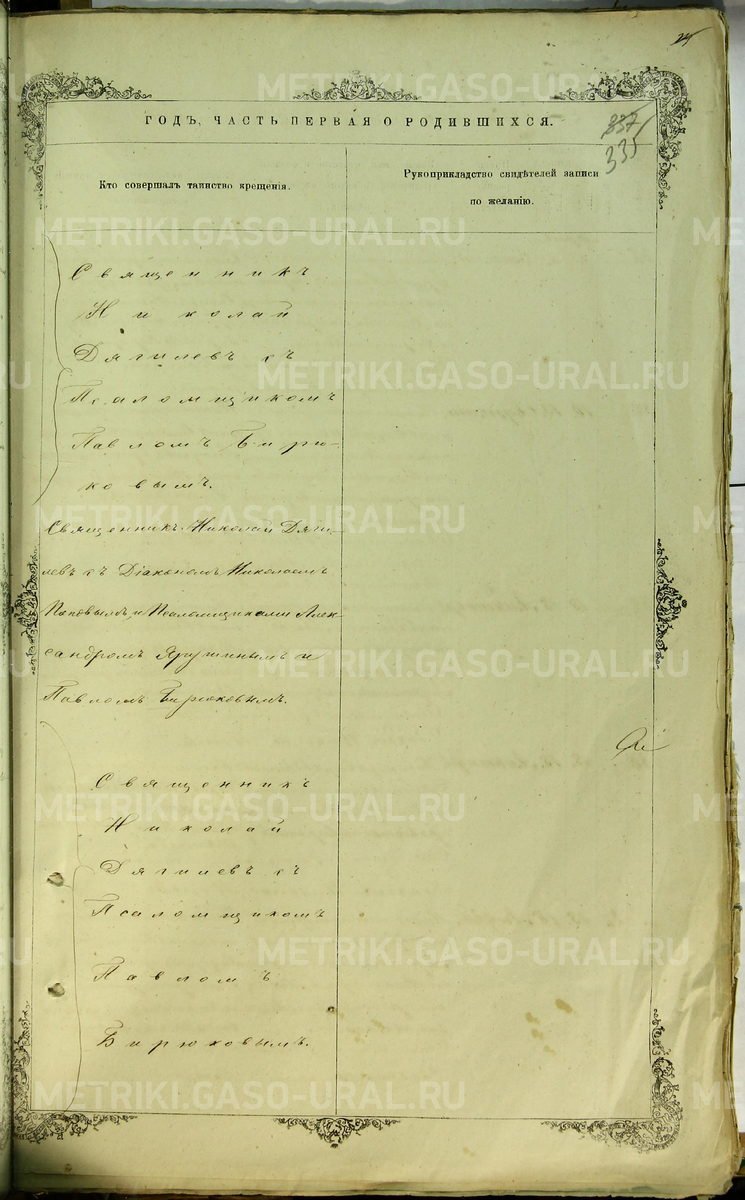 ГОДЪ, ЧАСТЬ ПЕРВАЯ О РОДИВШИХСЯ.
337
335
Кто совершалъ таинство крещенія.
Рукоприкладство свидѣтелей записи
по желанію.
Священникъ
Николай
Дягилевъ съ
Псаломщикомъ
Павломъ Бирю-
ковымъ.
Священникъ Николай Дяги-
левъ съ Діакономъ Николаемъ
Поповымъ и Псаломщиками Алек-
сандромъ Ярушинымъ и
Павломъ Бирюковымъ.
Священникъ
Николай
Дягилевъ съ
Псаломщикомъ
Павломъ
Бирюковымъ.
METRIKI.GASO-URAL.RU